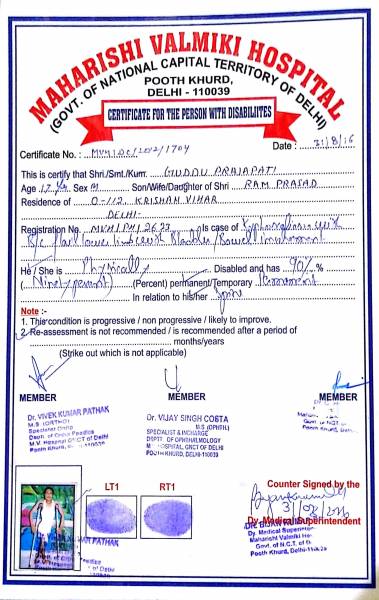 MAHARISHI VALMIKI HOSPITAL
(GOVT. OF NATIONAL CAPITAL TERRITORY OF DELHI)
POOTH KHURD,
DELHI - 110039
CERTIFICATE FOR THE PERSON WITH DISABILIITES
Certificate No. : MVH/DC/2012/1704 Date : 31/8/16
This is certify that Shri./Smt./Kum. GUDDU PRAJAPATI
Age 17 Yrs. Sex M Son/Wife/Daughter of Shri RAM PRASAD
Residence of O-112, KRISHAN VIHAR
DELHI-
Registration No. Is case of Kyphoscoliosis with
B/L flail lower limb with Bladder/Bowel involvement
He / She is Physically Disabled and has 90% %
(Ninety percent) (Percent) permanent/Temporary Permanent
In relation to his/her Spine
Note :-
1. This condition is progressive / non progressive / likely to improve.
2. Re-assessment is not recommended / is recommended after a period of
months/years
(Strike out which is not applicable)
MEMBER MEMBER MEMBER
Dr. VIVEK KUMAR PATHAK
M.S (ORTHO)
Specialist Ortho
Deptt. of Ortho Paedics
M.V. Hospital GNCT of Delhi
Pooth Khurd, Delhi-110039
Dr. VIJAY SINGH COSTA
M.S (OPHTH.)
SPECIALIST & INCHARGE
DEPTT OF OPHTHALMOLOGY
HOSPITAL, GNCT OF DELHI
POOTH KHURD, DELHI-110039
Govt. of NCT
Pooth Khurd,
LT1 RT1
PATHAK
Counter Signed by the
Dy. Medical Superintendent
Dy. Medical Superinten
Maharishi Valmiki
Govt. of N.C.T. of
Pooth Khurd, Delhi-